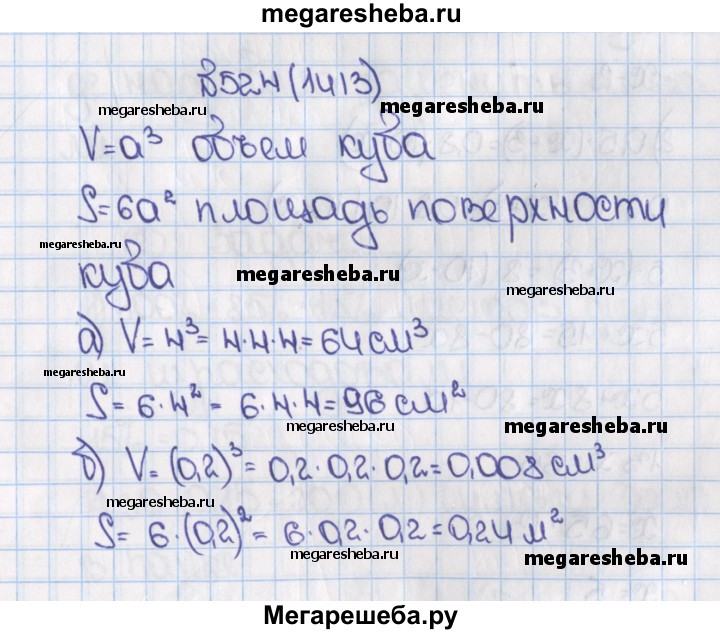 megaresheba.ru
В524(1413)
megaresheba.ru
megaresheba.ru
V=a³ объем куба
S=6a² площадь поверхности
megaresheba.ru
куба
megaresheba.ru
megaresheba.ru
а) V=4³=4·4·4=64см³
megaresheba.ru
S=6·4²=6·4·4=96см²
megaresheba.ru
megaresheba.ru
б) V=(0,2)³=0,2·0,2·0,2=0,008см³
megaresheba.ru
S=6·(0,2)²=6·0,2·0,2=0,24м²
megaresheba.ru
megaresheba.ru
Мегарешеба.ру